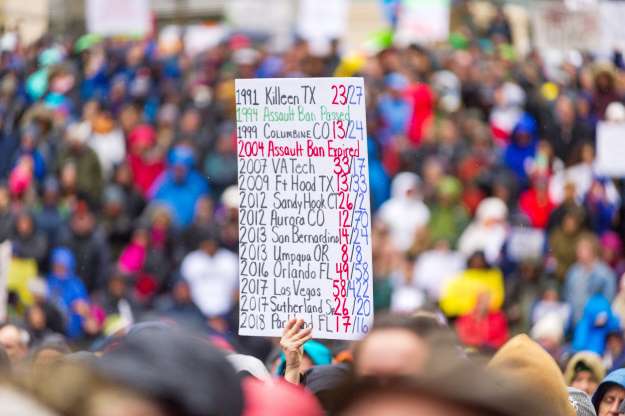 1991 Killeen TX 23/27
1994 Assault Ban Passed
1999 Columbine CO 13/24
2004 Assault Ban Expired
2007 VA Tech 33/17
2009 Ft Hood TX 13/33
2012 Sandy Hook CT 26/2
2012 Aurora CO 12/70
2013 San Bernardino 14/24
2013 Umpqua OR 8/8
2016 Orlando FL 49/58
2017 Las Vegas 58/422
2017 Sutherland 26/20
2018 FL 17/16